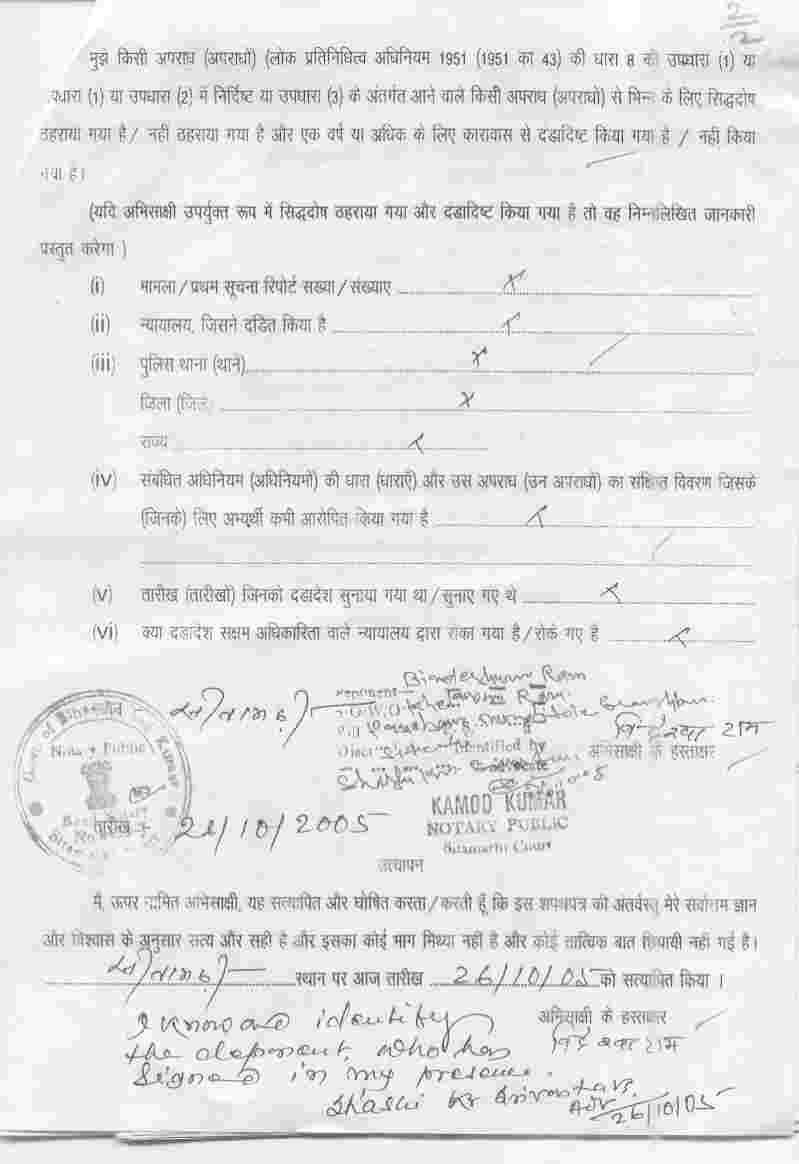 2/2
मुझे किसी अपराध (अपराधों) (लोक प्रतिनिधित्व अधिनियम 1951 (1951 का 43) की धारा 8 की उपधारा (1) या
उपधारा (1) या उपधारा (2) में निर्दिष्ट या उपधारा (3) के अंतर्गत आने वाले किसी अपराध (अपराधों) से भिन्न के लिए सिद्धदोष
ठहराया गया है / नहीं ठहराया गया है और एक वर्ष या अधिक के लिए कारावास से दंडादिष्ट किया गया है / नहीं किया
गया है।
(यदि अभिसाक्षी उपर्युक्त रूप में सिद्धदोष ठहराया गया और दंडादिष्ट किया गया है तो वह निम्नलिखित जानकारी
प्रस्तुत करेगा)
(i) मामला / प्रथम सूचना रिपोर्ट संख्या / संख्याएं x
(ii) न्यायालय, जिसने दंडित किया है x
(iii) पुलिस थाना (थाने) x
जिला (जिले) x
राज्य x
(iv) संबंधित अधिनियम (अधिनियमों) की धारा (धाराएँ) और उस अपराध (उन अपराधों) का संक्षिप्त विवरण जिसके
(जिनके) लिए अभ्यर्थी कभी आरोपित किया गया है x
(v) तारीख (तारीखों) जिनको दंडादेश सुनाया गया था / सुनाए गए थे x
(vi) क्या दंडादेश सक्षम अधिकारिता वाले न्यायालय द्वारा रोका गया है / रोके गए हैं x
Ram
Deponent
Ram
Identified by
अभिसाक्षी के हस्ताक्षर
Notary Public
KAMOD KUMAR
NOTARY PUBLIC
Sitamarhi Court
तारीख 26/10/2005
सत्यापन
मैं, ऊपर नामित अभिसाक्षी, यह सत्यापित और घोषित करता / करती हूँ कि इस शपथपत्र की अंतर्वस्तु मेरे सर्वोत्तम ज्ञान
और विश्वास के अनुसार सत्य और सही है और इसका कोई भाग मिथ्या नहीं है और कोई तात्विक बात छिपायी नहीं गई है।
स्थान पर आज तारीख 26/10/05 को सत्यापित किया।
अभिसाक्षी के हस्ताक्षर
I know and identify
the deponent, who has
signed in my presence.
Shashi Kr Srivastava
Adv 26/10/05